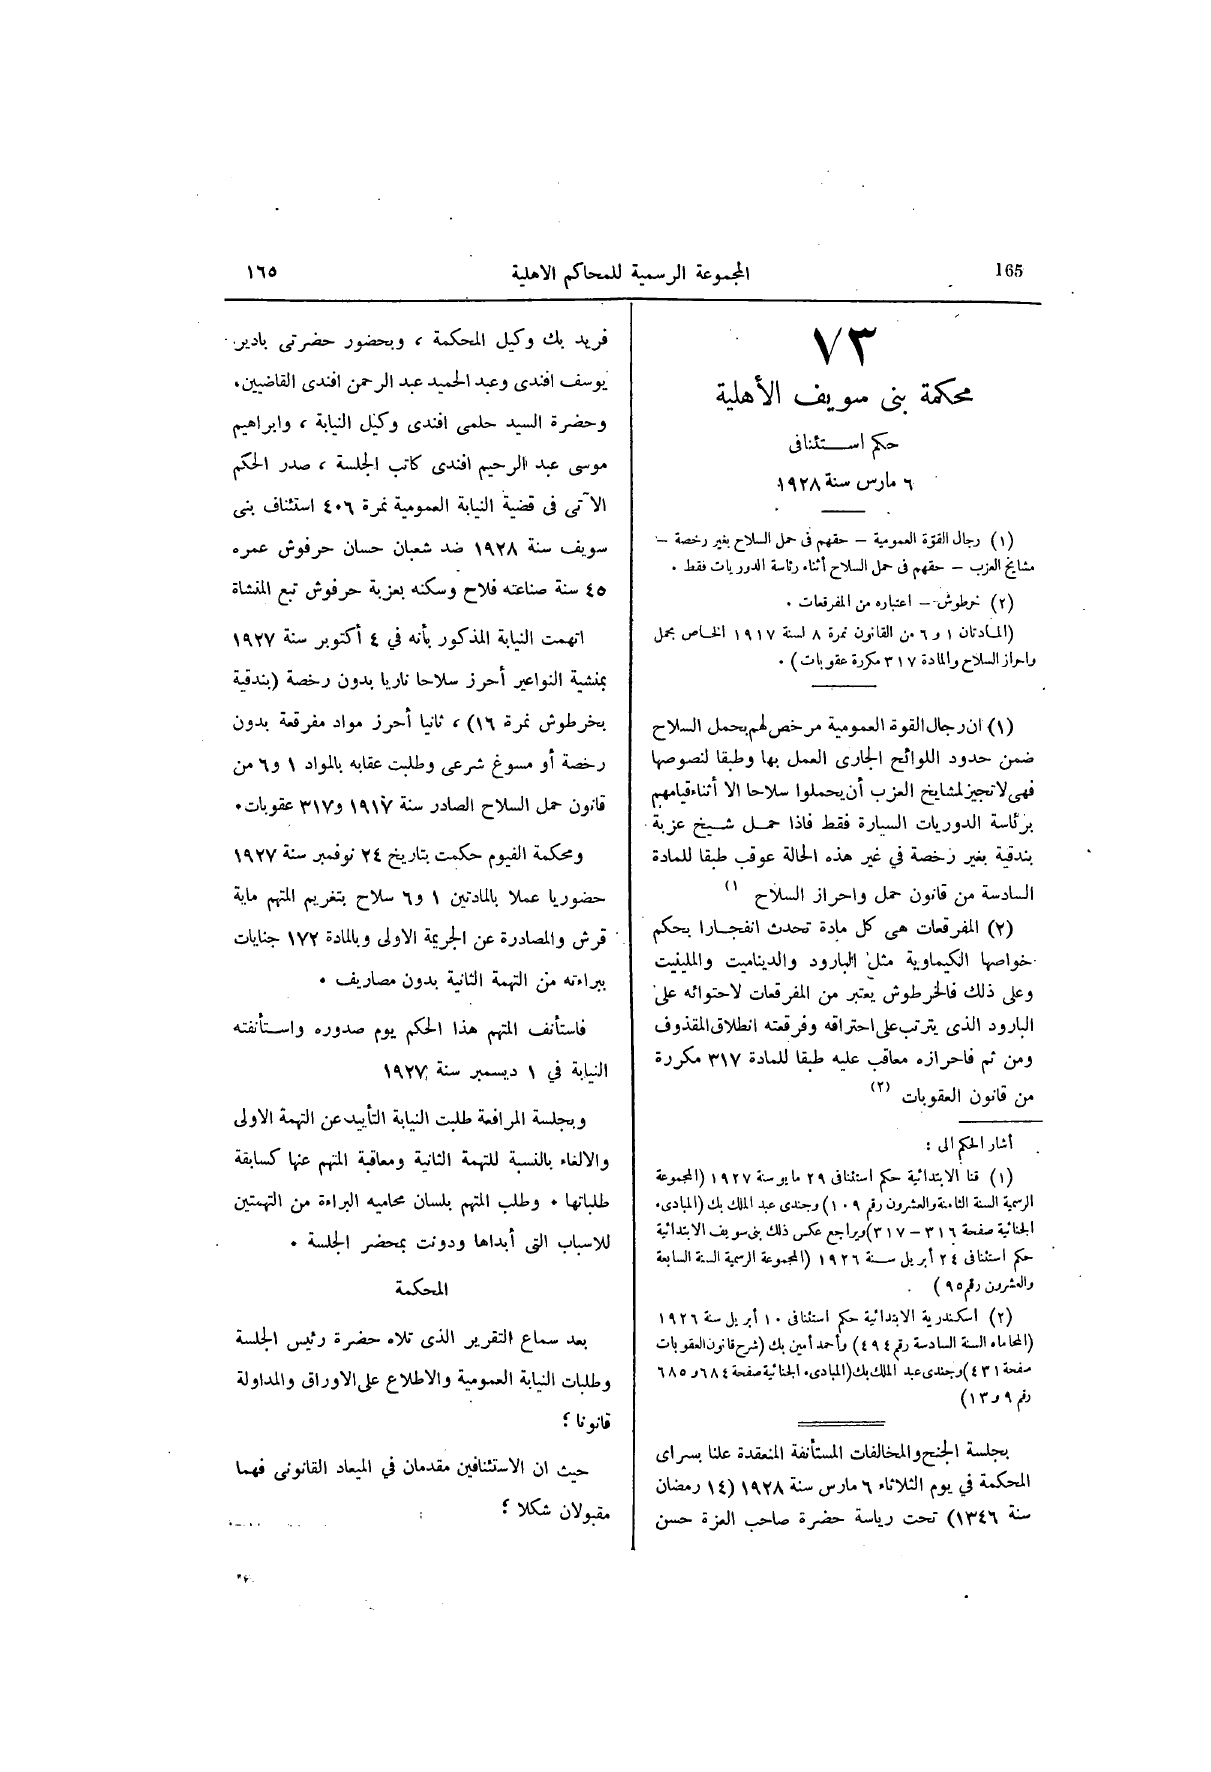 165
المجموعة الرسمية للمحاكم الاهلية
١٦٥
٧٣
محكمة بنى سويف الأهلية
حكم استئنافى
٦ مارس سنة ١٩٢٨
(١) رجال القوة العمومية – حقهم فى حمل السلاح بغير رخصة –
مشايخ العزب – حقهم فى حمل السلاح أثناء رئاسة الدوريات فقط .
(٢) خرطوش – اعتباره من المفرقعات .
(المادتان ١ و٦ من القانون نمرة ٨ لسنة ١٩١٧ الخاص بحمل
واحراز السلاح والمادة ٣١٧ مكررة عقوبات) .
(١) ان رجال القوة العمومية مرخص لهم بحمل السلاح
ضمن حدود اللوائح الجارى العمل بها وطبقا لنصوصها
فهى لاتجيز لمشايخ العزب أن يحملوا سلاحا الا أثناء قيامهم
برئاسة الدوريات السيارة فقط فاذا حمل شيخ عزبة
بندقية بغير رخصة في غير هذه الحالة عوقب طبقا للمادة
السادسة من قانون حمل واحراز السلاح (١)
(٢) المفرقعات هى كل مادة تحدث انفجارا بحكم
خواصها الكيماوية مثل البارود والديناميت والملينيت
وعلى ذلك فالخرطوش يعتبر من المفرقعات لاحتوائه على
البارود الذى يترتب على احتراقه وفرقعته انطلاق المقذوف
ومن ثم فاحرازه معاقب عليه طبقا للمادة ٣١٧ مكررة
من قانون العقوبات (٢)
أشار الحكم الى :
(١) قنا الابتدائية حكم استئنافى ٢٩ مايو سنة ١٩٢٧ (المجموعة
الرسمية السنة الثامنة والعشرون رقم ١٠٩) وجندى عبد الملك بك (المبادىء
الجنائية صفحة ٣١٦ – ٣١٧) ويراجع عكس ذلك بنى سويف الابتدائية
حكم استئنافى ٢٤ أبريل سنة ١٩٢٦ (المجموعة الرسمية السنة السابعة
والعشرون رقم ٩٥ )
(٢) اسكندرية الابتدائية حكم استئنافى ١٠ أبريل سنة ١٩٢٦
(المحاماه السنة السادسة رقم ٤٩٤) وأحمد أمين بك (شرح قانون العقوبات
صفحة ٤٣١) وجندى عبد الملك بك (المبادىء الجنائية صفحة ٦٨٤ و ٦٨٥
رقم ٩ و ١٣)
بجلسة الجنح والمخالفات المستأنفة المنعقدة علنا بسراى
المحكمة في يوم الثلاثاء ٦ مارس سنة ١٩٢٨ (١٤ رمضان
سنة ١٣٤٦) تحت رياسة حضرة صاحب العزة حسن
فريد بك وكيل المحكمة ، وبحضور حضرتى بادير
يوسف افندى وعبد الحميد عبد الرحمن افندى القاضيين .
وحضرة السيد حلمى افندى وكيل النيابة ، وابراهيم
موسى عبد الرحيم افندى كاتب الجلسة ، صدر الحكم
الآتى فى قضية النيابة العمومية نمرة ٤٠٦ استئناف بنى
سويف سنة ١٩٢٨ ضد شعبان حسان حرفوش عمره
٤٥ سنة صناعته فلاح وسكنه بعزبة حرفوش تبع المنشاة
اتهمت النيابة المذكور بأنه في ٤ أكتوبر سنة ١٩٢٧
بمنشية النواعير أحرز سلاحا ناريا بدون رخصة (بندقية
بخرطوش نمرة ١٦) ، ثانيا أحرز مواد مفرقعة بدون
رخصة أو مسوغ شرعى وطلبت عقابه بالمواد ١ و٦ من
قانون حمل السلاح الصادر سنة ١٩١٧ و٣١٧ عقوبات .
ومحكمة الفيوم حكمت بتاريخ ٢٤ نوفمبر سنة ١٩٢٧
حضوريا عملا بالمادتين ١ و٦ سلاح بتغريم المتهم ماية
قرش والمصادرة عن الجريمة الاولى وبالمادة ١٧٢ جنايات
ببراءته من التهمة الثانية بدون مصاريف .
فاستأنف المتهم هذا الحكم يوم صدوره واستأنفته
النيابة في ١ ديسمبر سنة ١٩٢٧
وبجلسة المرافعة طلبت النيابة التأييد عن التهمة الاولى
والالغاء بالنسبة للتهمة الثانية ومعاقبة المتهم عنها كسابقة
طلباتها . وطلب المتهم بلسان محاميه البراءة من التهمتين
للاسباب التى أبداها ودونت بمحضر الجلسة .
المحكمة
بعد سماع التقرير الذى تلاه حضرة رئيس الجلسة
وطلبات النيابة العمومية والاطلاع على الاوراق والمداولة
قانونا ؛
حيث ان الاستئنافين مقدمان في الميعاد القانونى فهما
مقبولان شكلا ؛